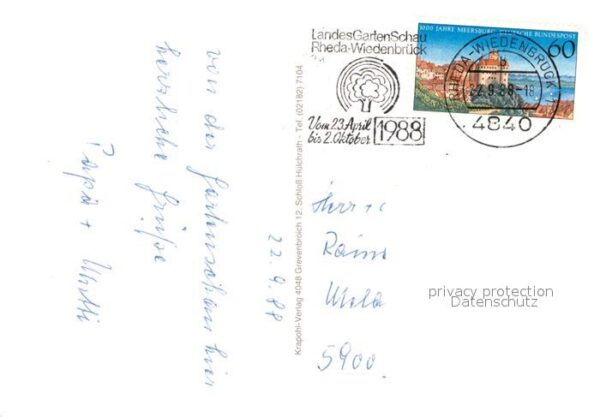 von der Gartenschau hier
herzliche Grüße
Papa + Mutti
22.9.88
Krapohl-Verlag 4048 Grevenbroich 12, Schloß Hülchrath · Tel. (02182) 7104
LandesGartenSchau
Rheda-Wiedenbrück
Vom 23.April
bis 2.Oktober
1988
1000 JAHRE MEERSBURG DEUTSCHE BUNDESPOST
60
RHEDA-WIEDENBRÜCK 1
22.9.88-18
4840
5900
privacy protection
Datenschutz